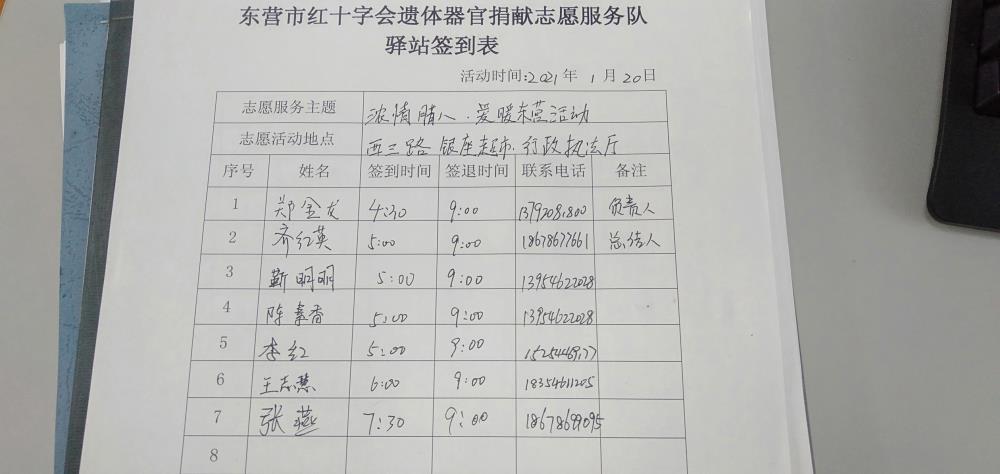 东营市红十字会遗体器官捐献志愿服务队
驿站签到表
活动时间:2021年 1月20日
志愿服务主题 浓情腊八·爱暖东营活动
志愿活动地点 西三路 银座超市·行政执法厅
序号 姓名 签到时间 签退时间 联系电话 备注
1 郑金龙 4:30 9:00 负责人
2 齐红英 5:00 9:00 18678677661 总结人
3 靳明明 5:00 9:00 13954622028
4 陈素香 5:00 9:00 13954622028
5 李红 5:00 9:00
6 王志慧 6:00 9:00 18354611205
7 张燕 7:30 9:00 18678699095
8